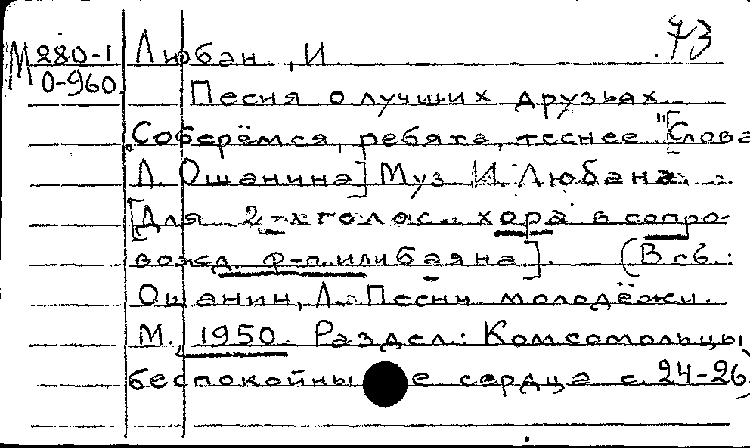 73
М 280-1 Любан, И
0-960
Песня о лучших друзьях
„Соберёмся, ребята, теснее" [Слова
Л. Ошанина] Муз И. Любана.
[Для 2-х голос. хора в сопро-
вожд. ф-п. или баяна]. (В сб.:
Ошанин, Л. Песни молодёжи.
М., 1950. Раздел: Комсомольцы,
беспокойные сердца с. 24-26)